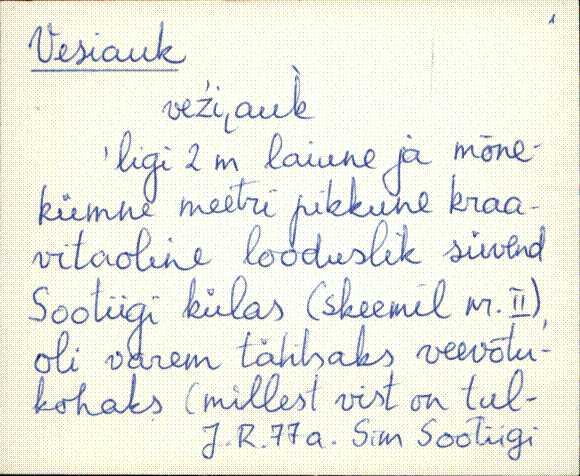 1
Vesiauk
veži̮auk̀
'ligi 2 m laiune ja mõne-
kümne meetri pikkune kraa-
vitaoline looduslik süvend
Sootiigi külas (skeemil nr. II),
oli varem tähtsaks veevõtu-
kohaks (millest vist on tul-
J.R. 77 a. Sim Sootiigi